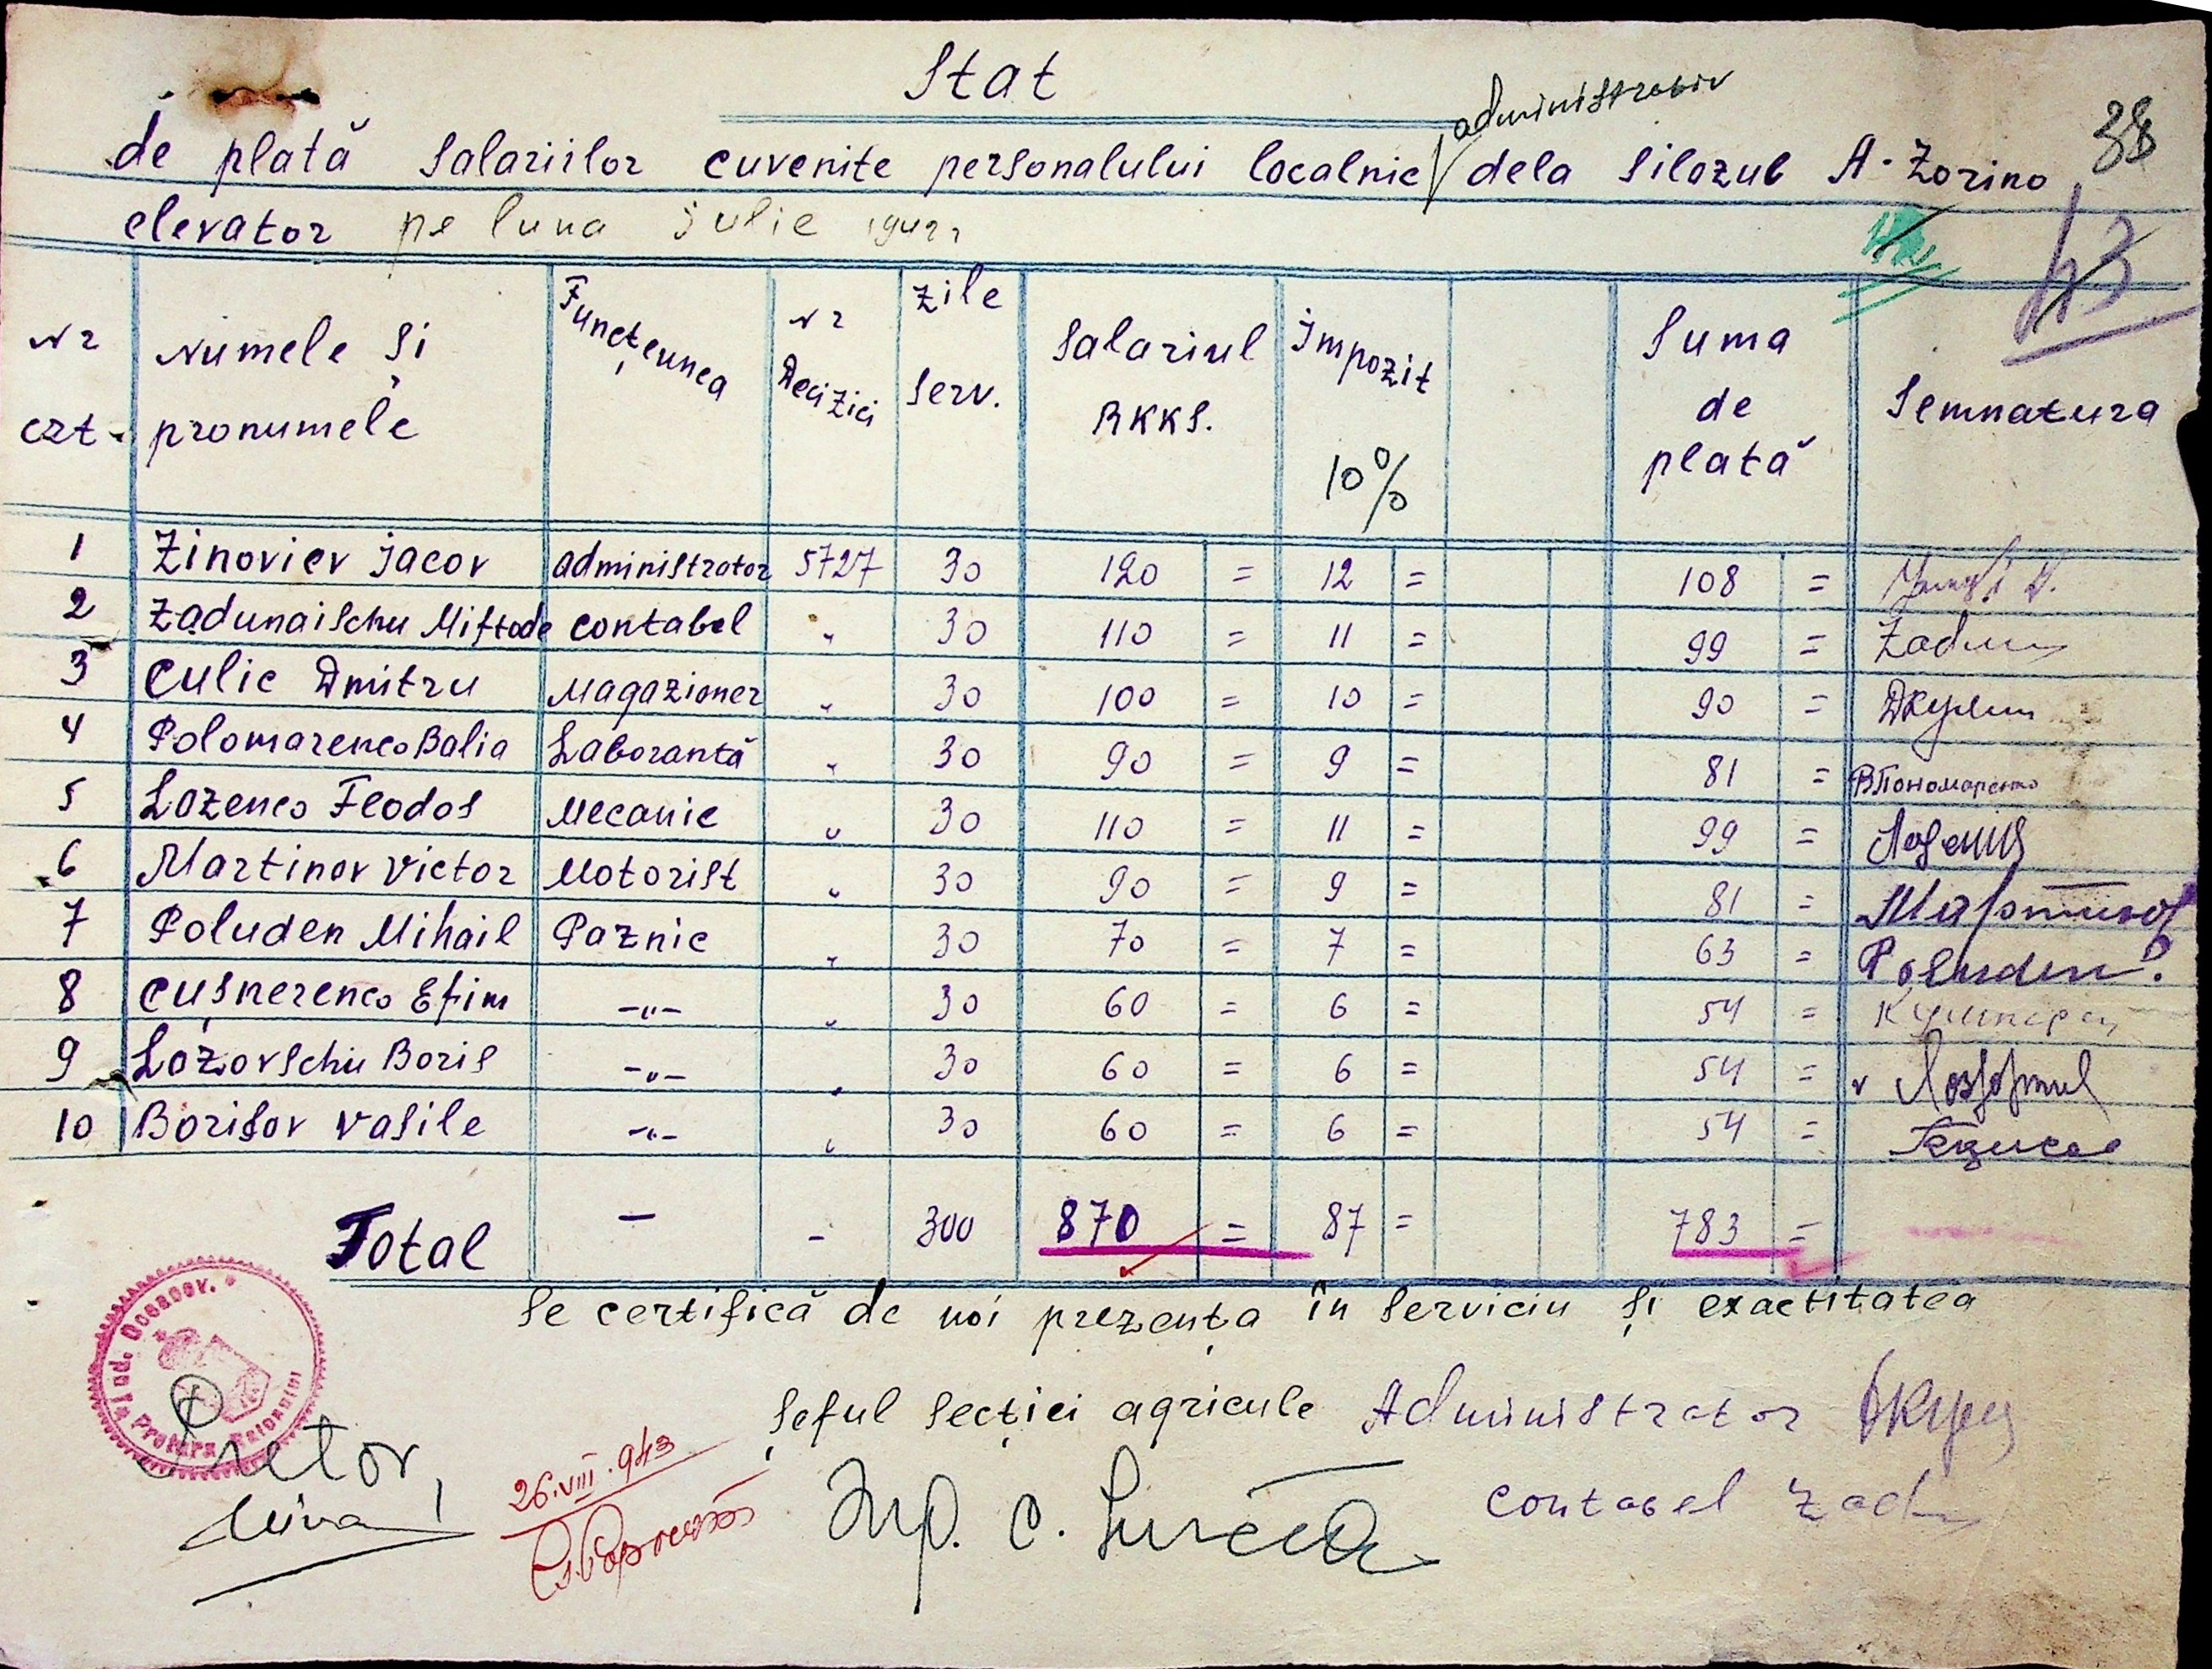 Stat
administrativ
de plată Salariilor cuvenite personalului localnic dela Silozul A. Zorino
38
elevator pe luna julie 1942
43
Nr crt. Numele și pronumele Funcțeunea Nr Decizici Zile Serv. Salariul RKKS. Impozit 10% Suma de plată Semnatura
1 Zinoviev Jacov administrator 5727 30 120 = 12 = 108 =
2 Zadunaischu Miftode contabel " 30 110 = 11 = 99 = Zadun
3 Culic Dmitru Magazioner " 30 100 = 10 = 90 = ДКулик
4 Polomarenco Balia Laborantă " 30 90 = 9 = 81 = ВПономаренко
5 Lozenco Feodos Mecanic " 30 110 = 11 = 99 =
6 Martinov Victor Motorist " 30 90 = 9 = 81 = Мартинов
7 Poluden Mihail Paznic " 30 70 = 7 = 63 = Poluden
8 Cușnerenco Efim -"- " 30 60 = 6 = 54 = Кушнерен
9 Lozovschu Boris -"- " 30 60 = 6 = 54 =
10 Borisov Vasile -"- " 30 60 = 6 = 54 =
Total - - 300 870 = 87 = 783 =
Se certifică de noi prezența în Serviciu și exactitatea
Jud. Oceacov.
Pretura Raionului
Șeful Secției agricule Administrator
Pretor,
26.VIII.943
Contabel Zad